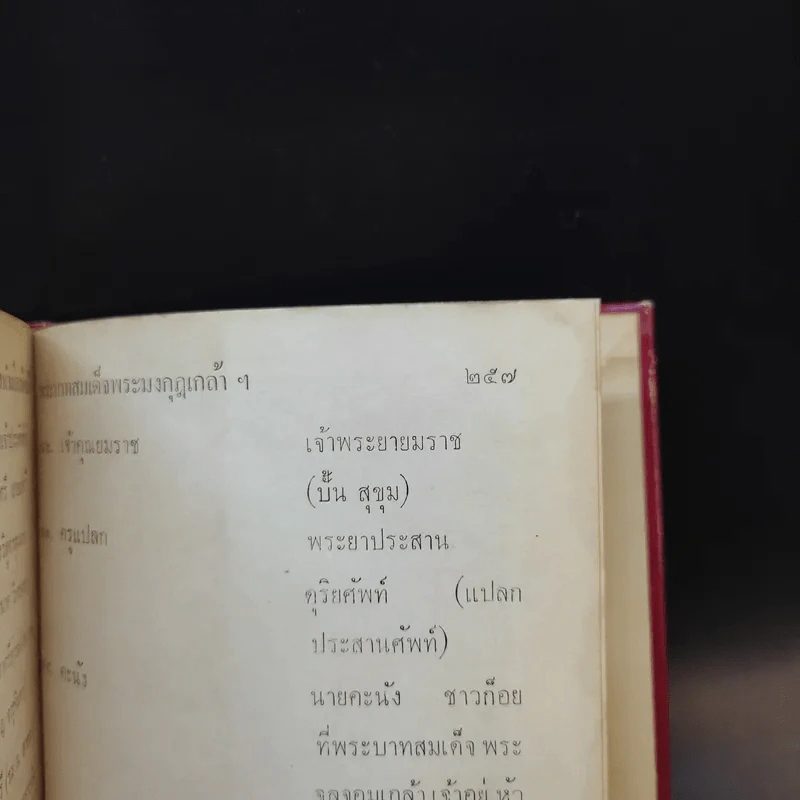 พระบาทสมเด็จพระมงกุฎเกล้า ฯ ๒๕๗
เจ้าคุณยมราช เจ้าพระยายมราช
(ปั้น สุขุม)
ครูแปลก พระยาประสาน
ดุริยศัพท์ (แปลก
ประสานศัพท์)
คะนัง
นายคะนัง ชาวก็อย
ที่พระบาทสมเด็จ พระ
จุลจอมเกล้า เจ้าอยู่ หัว